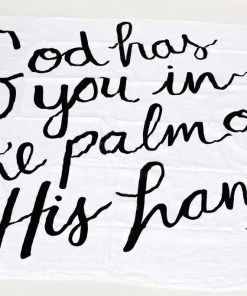 God has
you in
the palm of
His hand